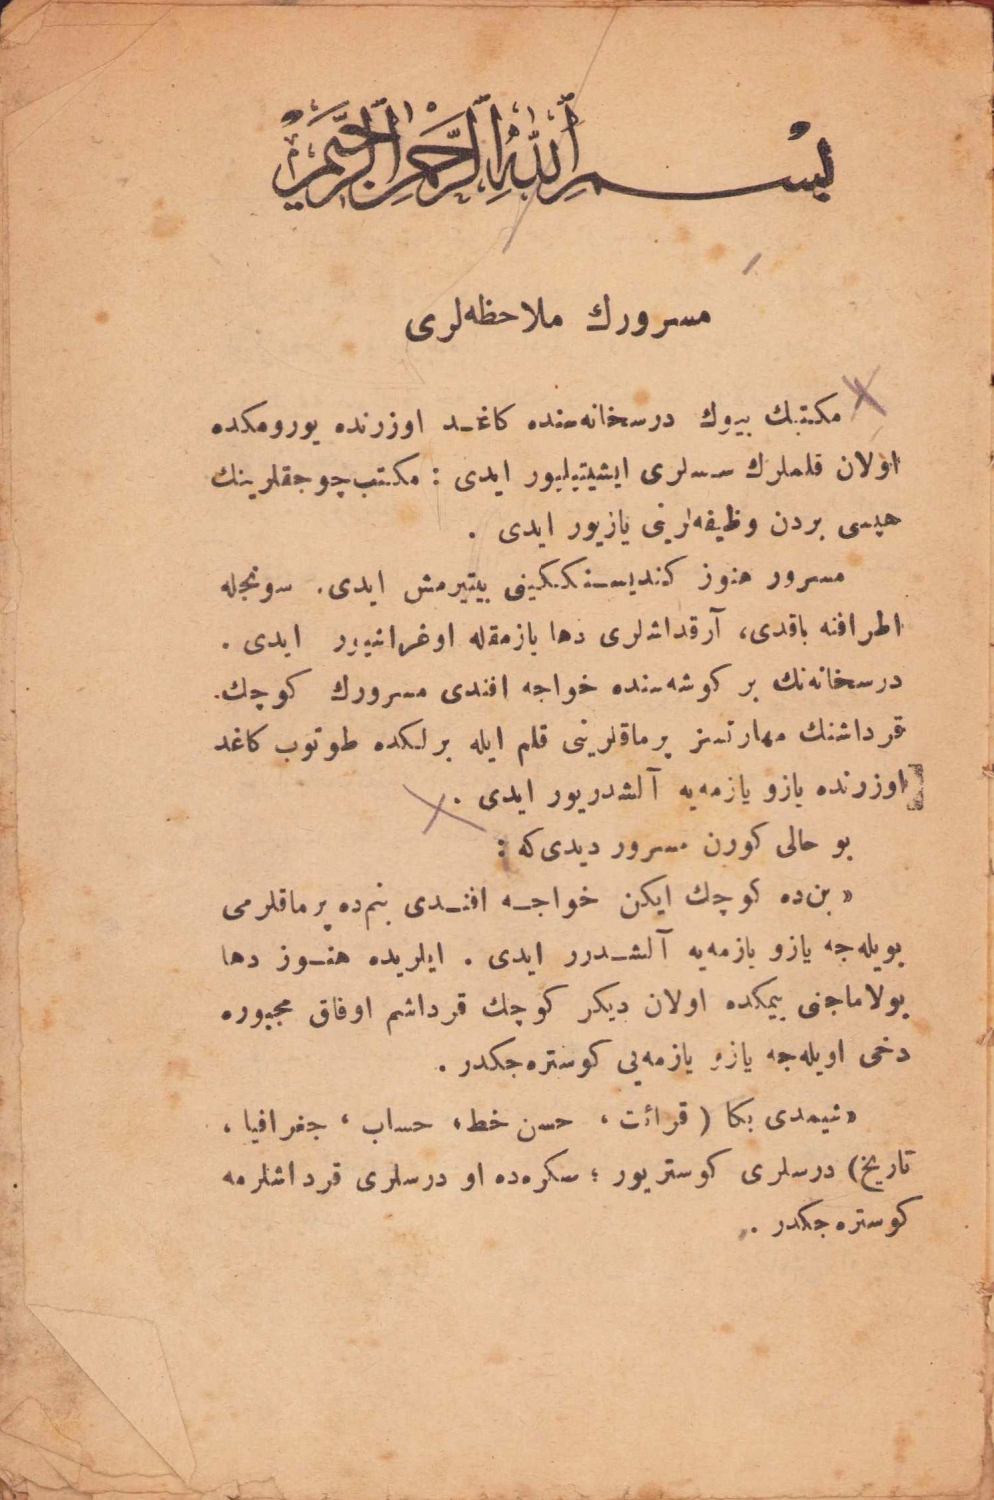 بسم الله الرحمن الرحيم
مسرورك ملاحظه‌لری
مكتبك بیوك درسخانه‌سنده كاغد اوزرنده یورومكده
اولان قلملرك سسلری ایشیتیلیور ایدی : مكتب چوجقلرینك
هپسی بردن وظیفه‌لرینی یازیور ایدی .
مسرور هنوز كندیسنككینی بیتیرمش ایدی. سونجله
اطرافنه باقدی، آرقداشلری دها یازمقله اوغراشیور ایدی .
درسخانه‌نك بر كوشه‌سنده خواجه افندی مسرورك كوچك
قرداشنك مهارتسز پرماقلرینی قلم ایله برلكده طوتوب كاغد
اوزرنده یازو یازمه‌یه آلشدریور ایدی .
بو حالی كورن مسرور دیدی‌كه :
« بن‌ده كوچك ایكن خواجه افندی بنم‌ده پرماقلرمی
بویله‌جه یازو یازمه‌یه آلشدرر ایدی . ایلریده هنوز دها
بولاماجنی ییمكده اولان دیكر كوچك قرداشم اوفاق مجبوره
دخی اویله‌جه یازو یازمه‌یی كوستره‌جكدر .
« شیمدی بكا ( قرائت ، حسن خط ، حساب ، جغرافیا ،
تاریخ) درسلری كوستریور ؛ سكره‌ده او درسلری قرداشلرمه
كوستره‌جكدر .